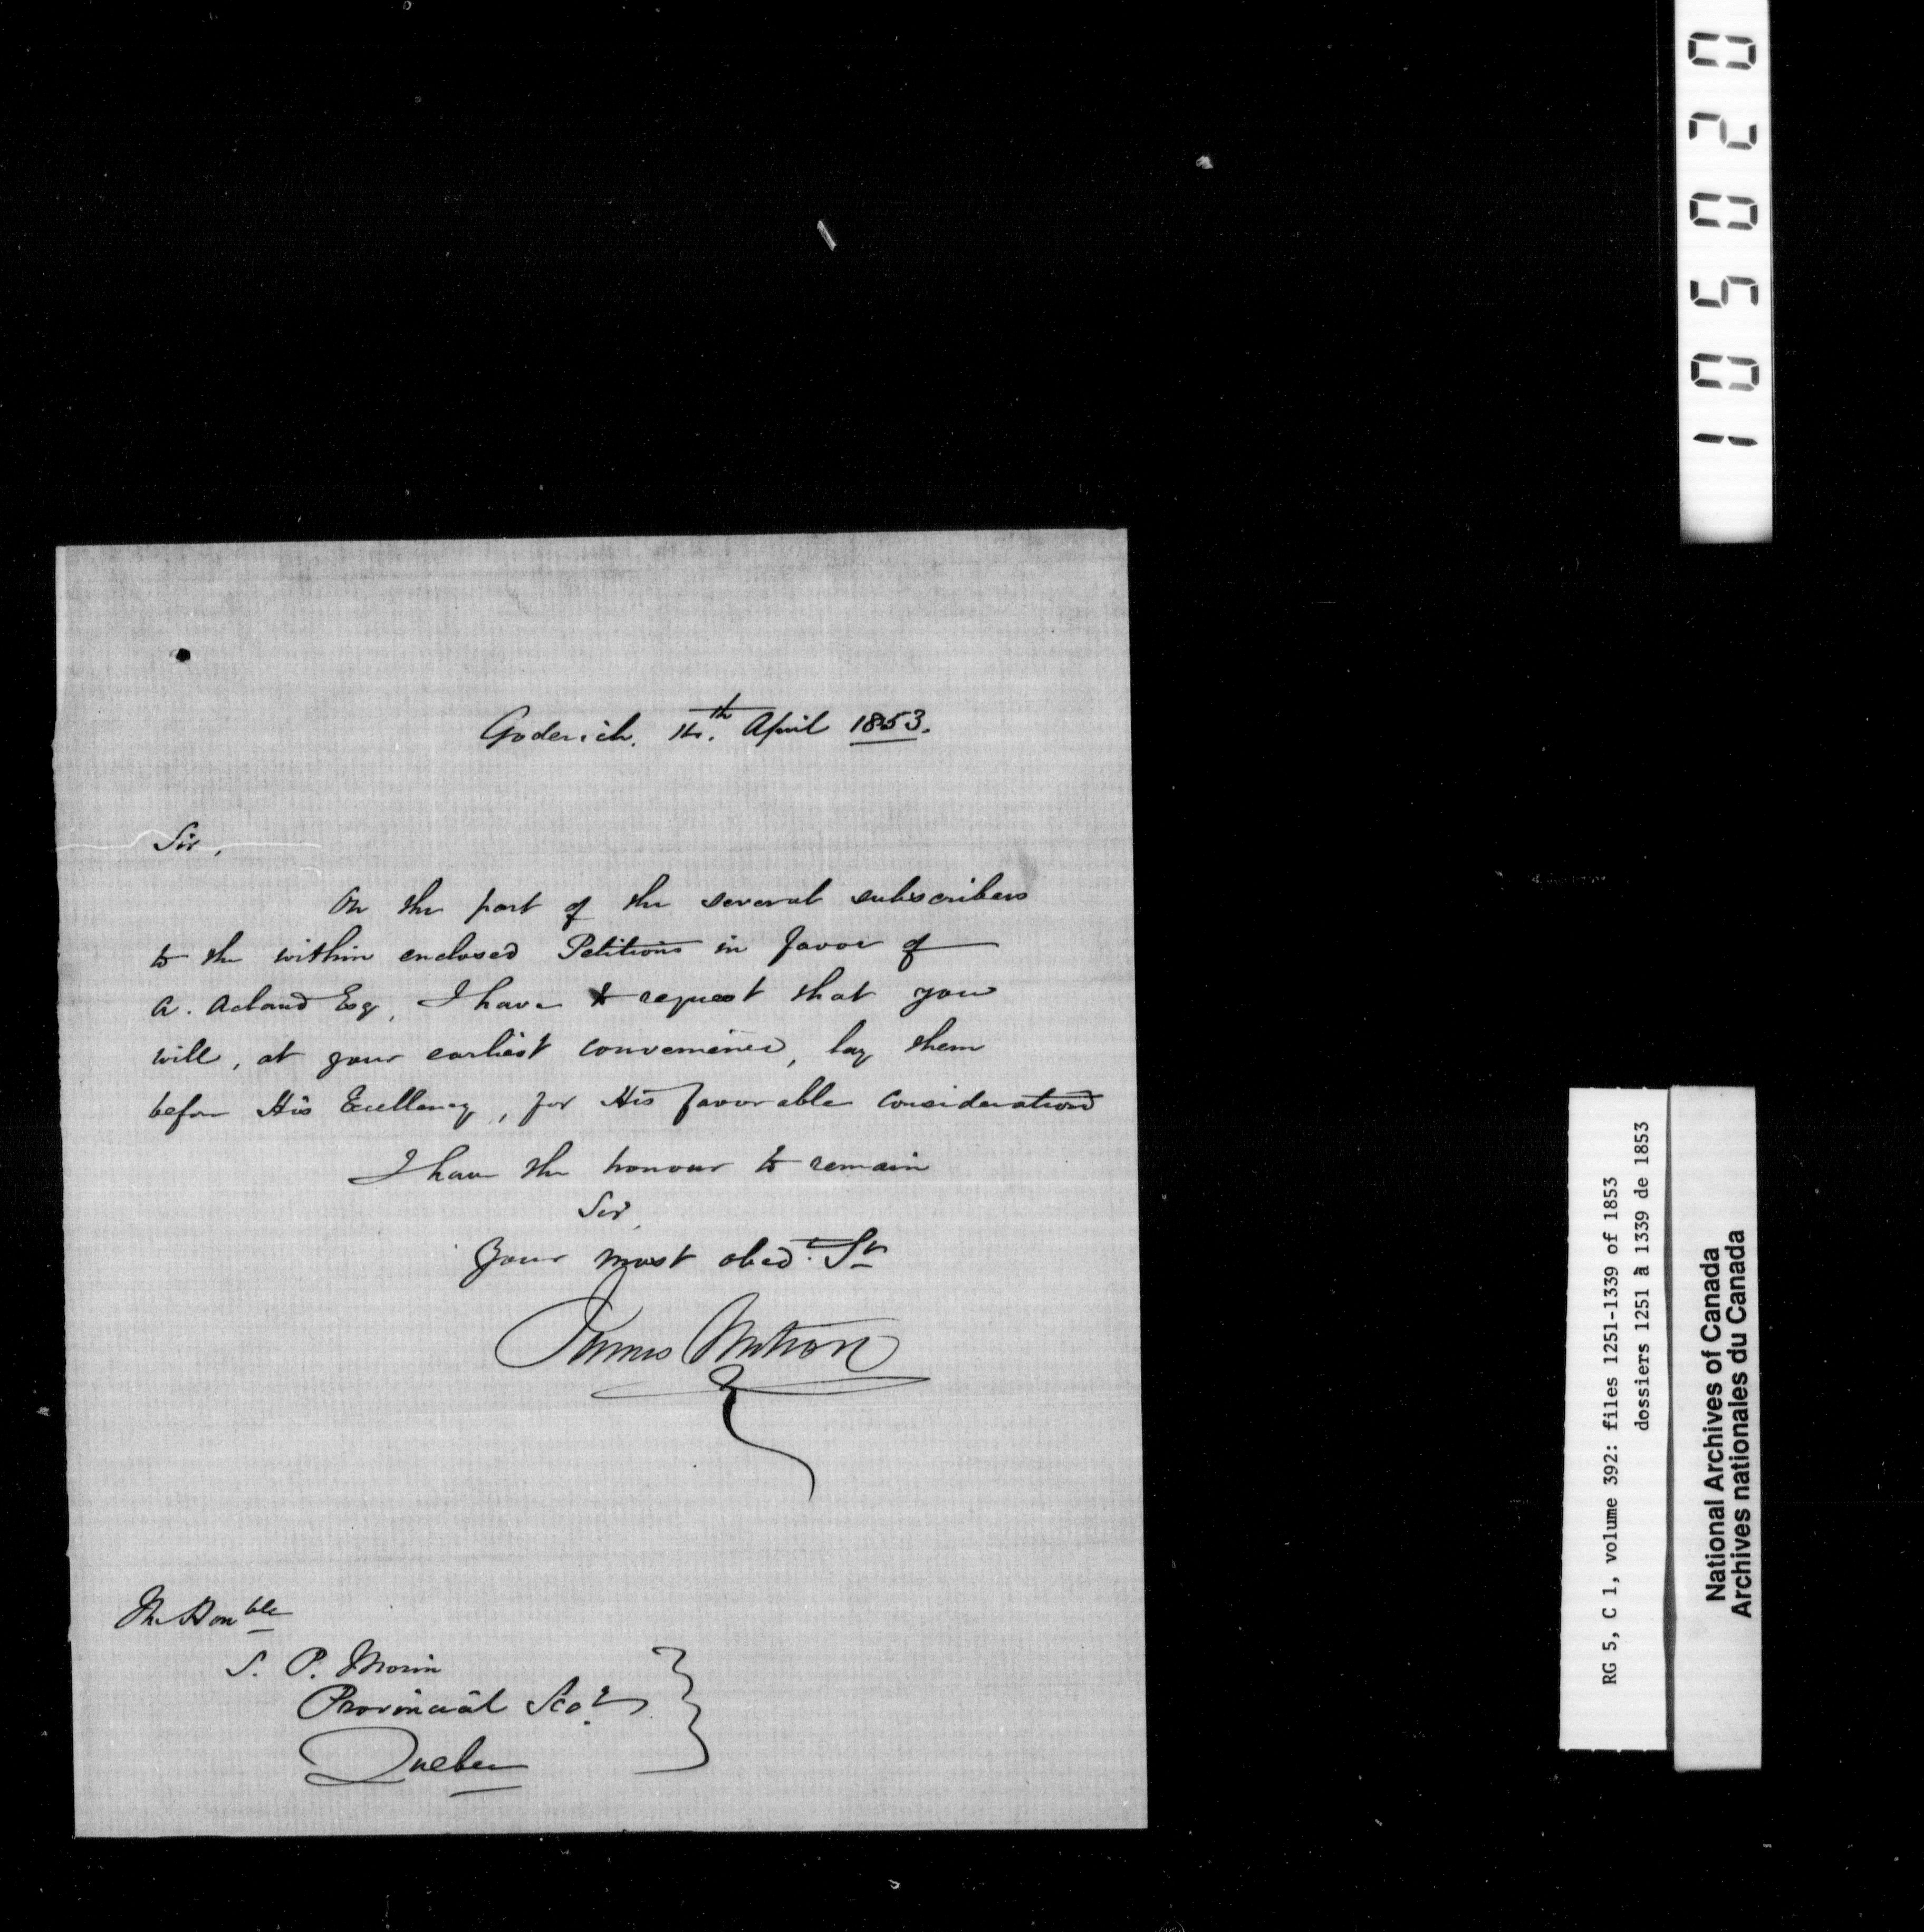 Goderich. 14.th April 1853.
Sir,
On the part of the several subscribers
to the within enclosed Petitions in favor of
A. Acland Esq, I have to request that you
will, at your earliest convenience, lay them
before His Excellency, for His favorable consideration
I have the honour to remain
Sir,
Your most obed.t St
James
The Honble
P. Morin
Provincial Secy
Quebec
105020
RG 5, C 1, volume 392: files 1251-1339 of 1853
dossiers 1251 à 1339 de 1853
National Archives of Canada
Archives nationales du Canada